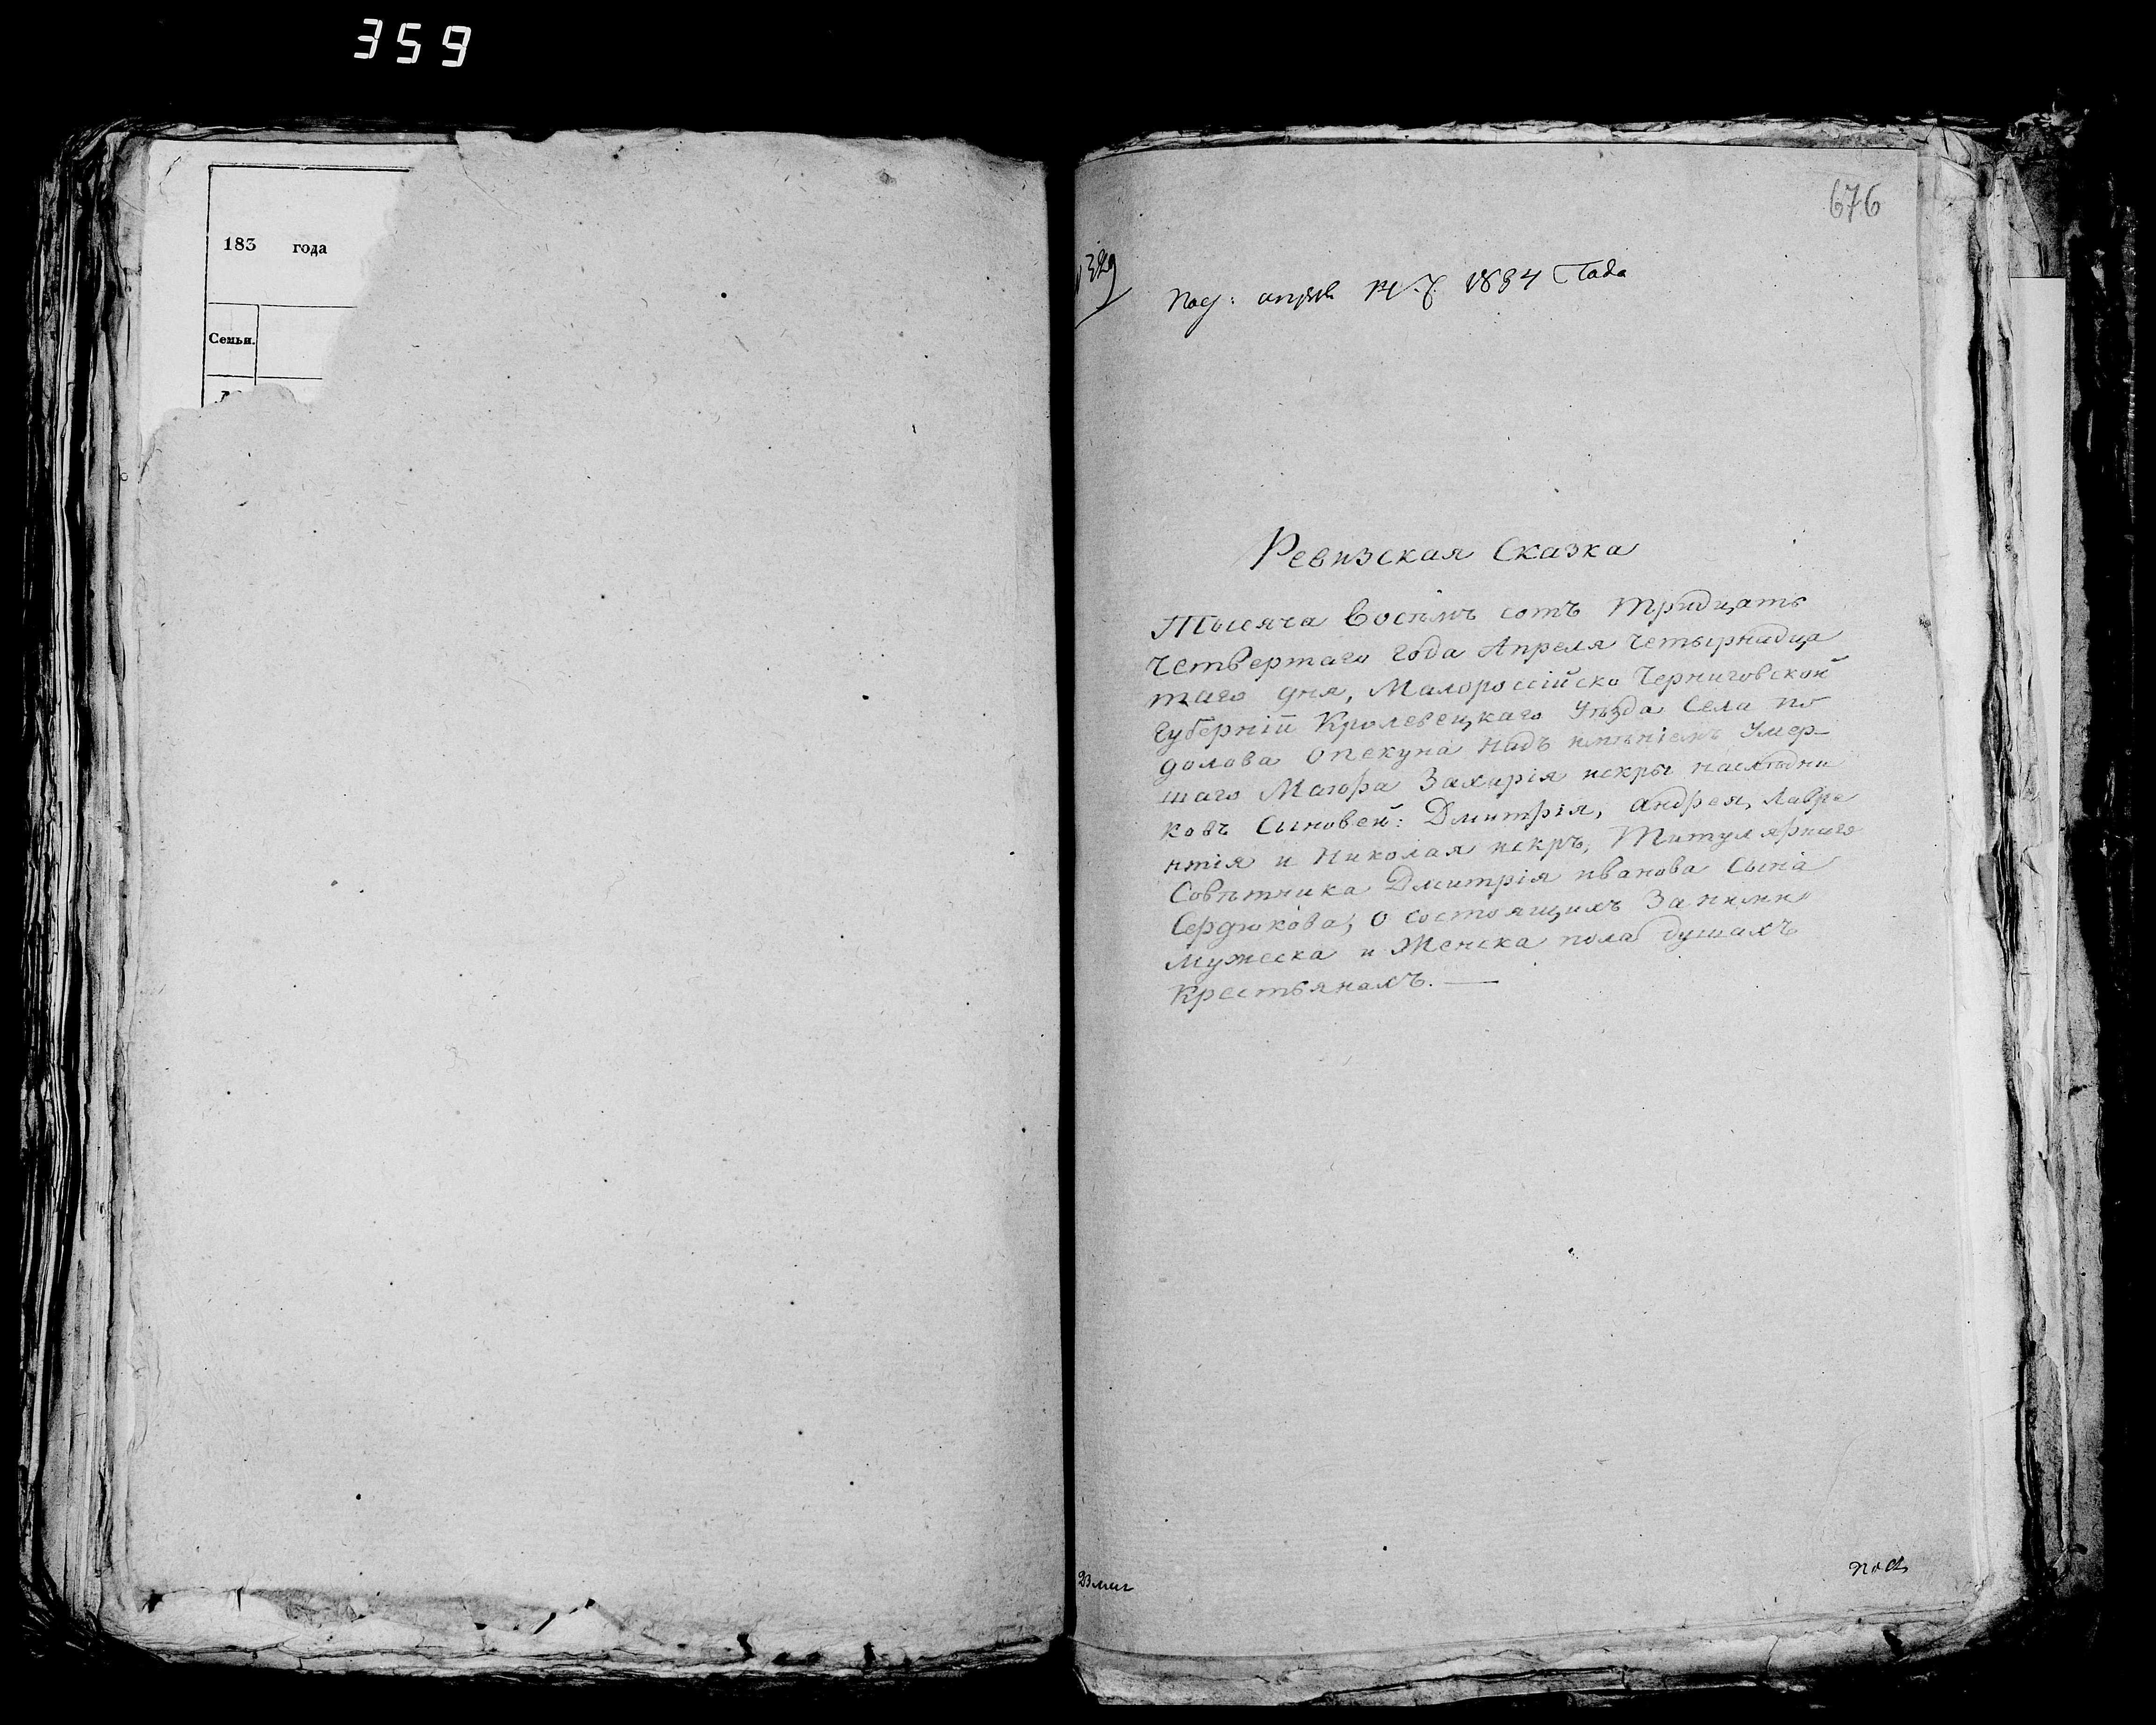 359
183 года
Семьи.
676
329
Под: апреля 14 1834 Года
Ревизская Сказка
Тысяча Восемъ сотъ тридцать
четвертаго года Апреля четырнадца
таго дня, Малороссійско Черниговской
губерніи Кролевецкаго Уѣзда Села по
долова опекуна надъ имѣніемъ Умер-
шаго Маіора Захарія искры наслѣдни
ковъ Сыновей: Дмитрія, андрея, Лавре
нтія и Николая искръ, Титулярнаго
Совѣтника Дмитрія иванова Сына
Сердюкова; о состоящихъ За ними
мужеска и Женска пола душахъ
Крестьянахъ.